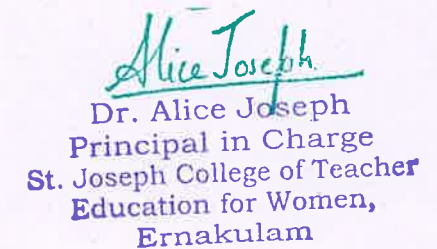 Alice Joseph.
Dr. Alice Joseph
Principal in Charge
St. Joseph College of Teacher
Education for Women,
Ernakulam